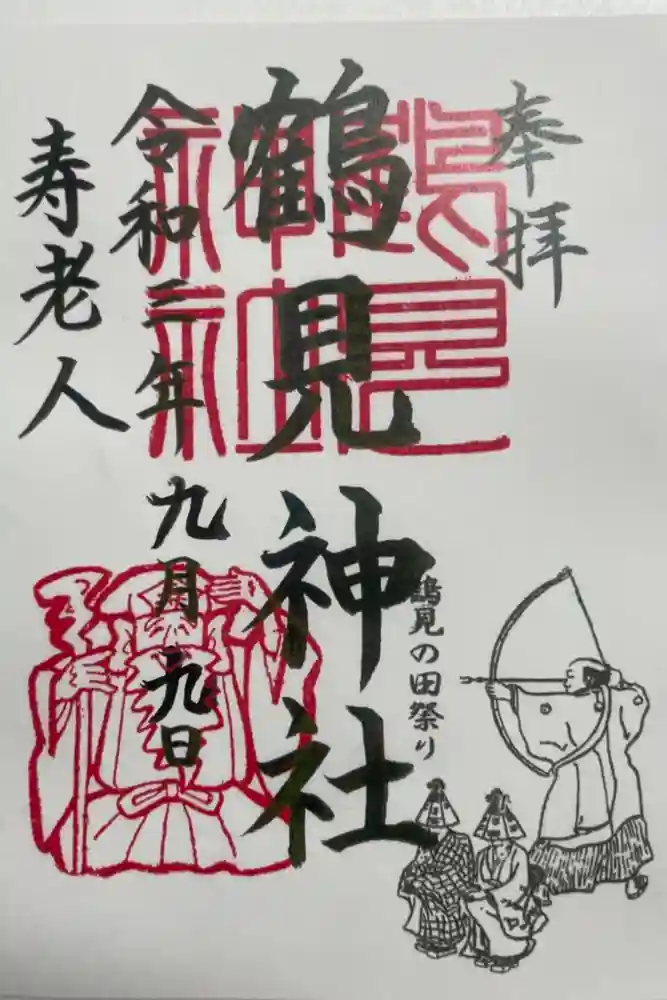 奉拝
鶴見神社
鶴見の田祭り
令和三年九月九日
寿老人